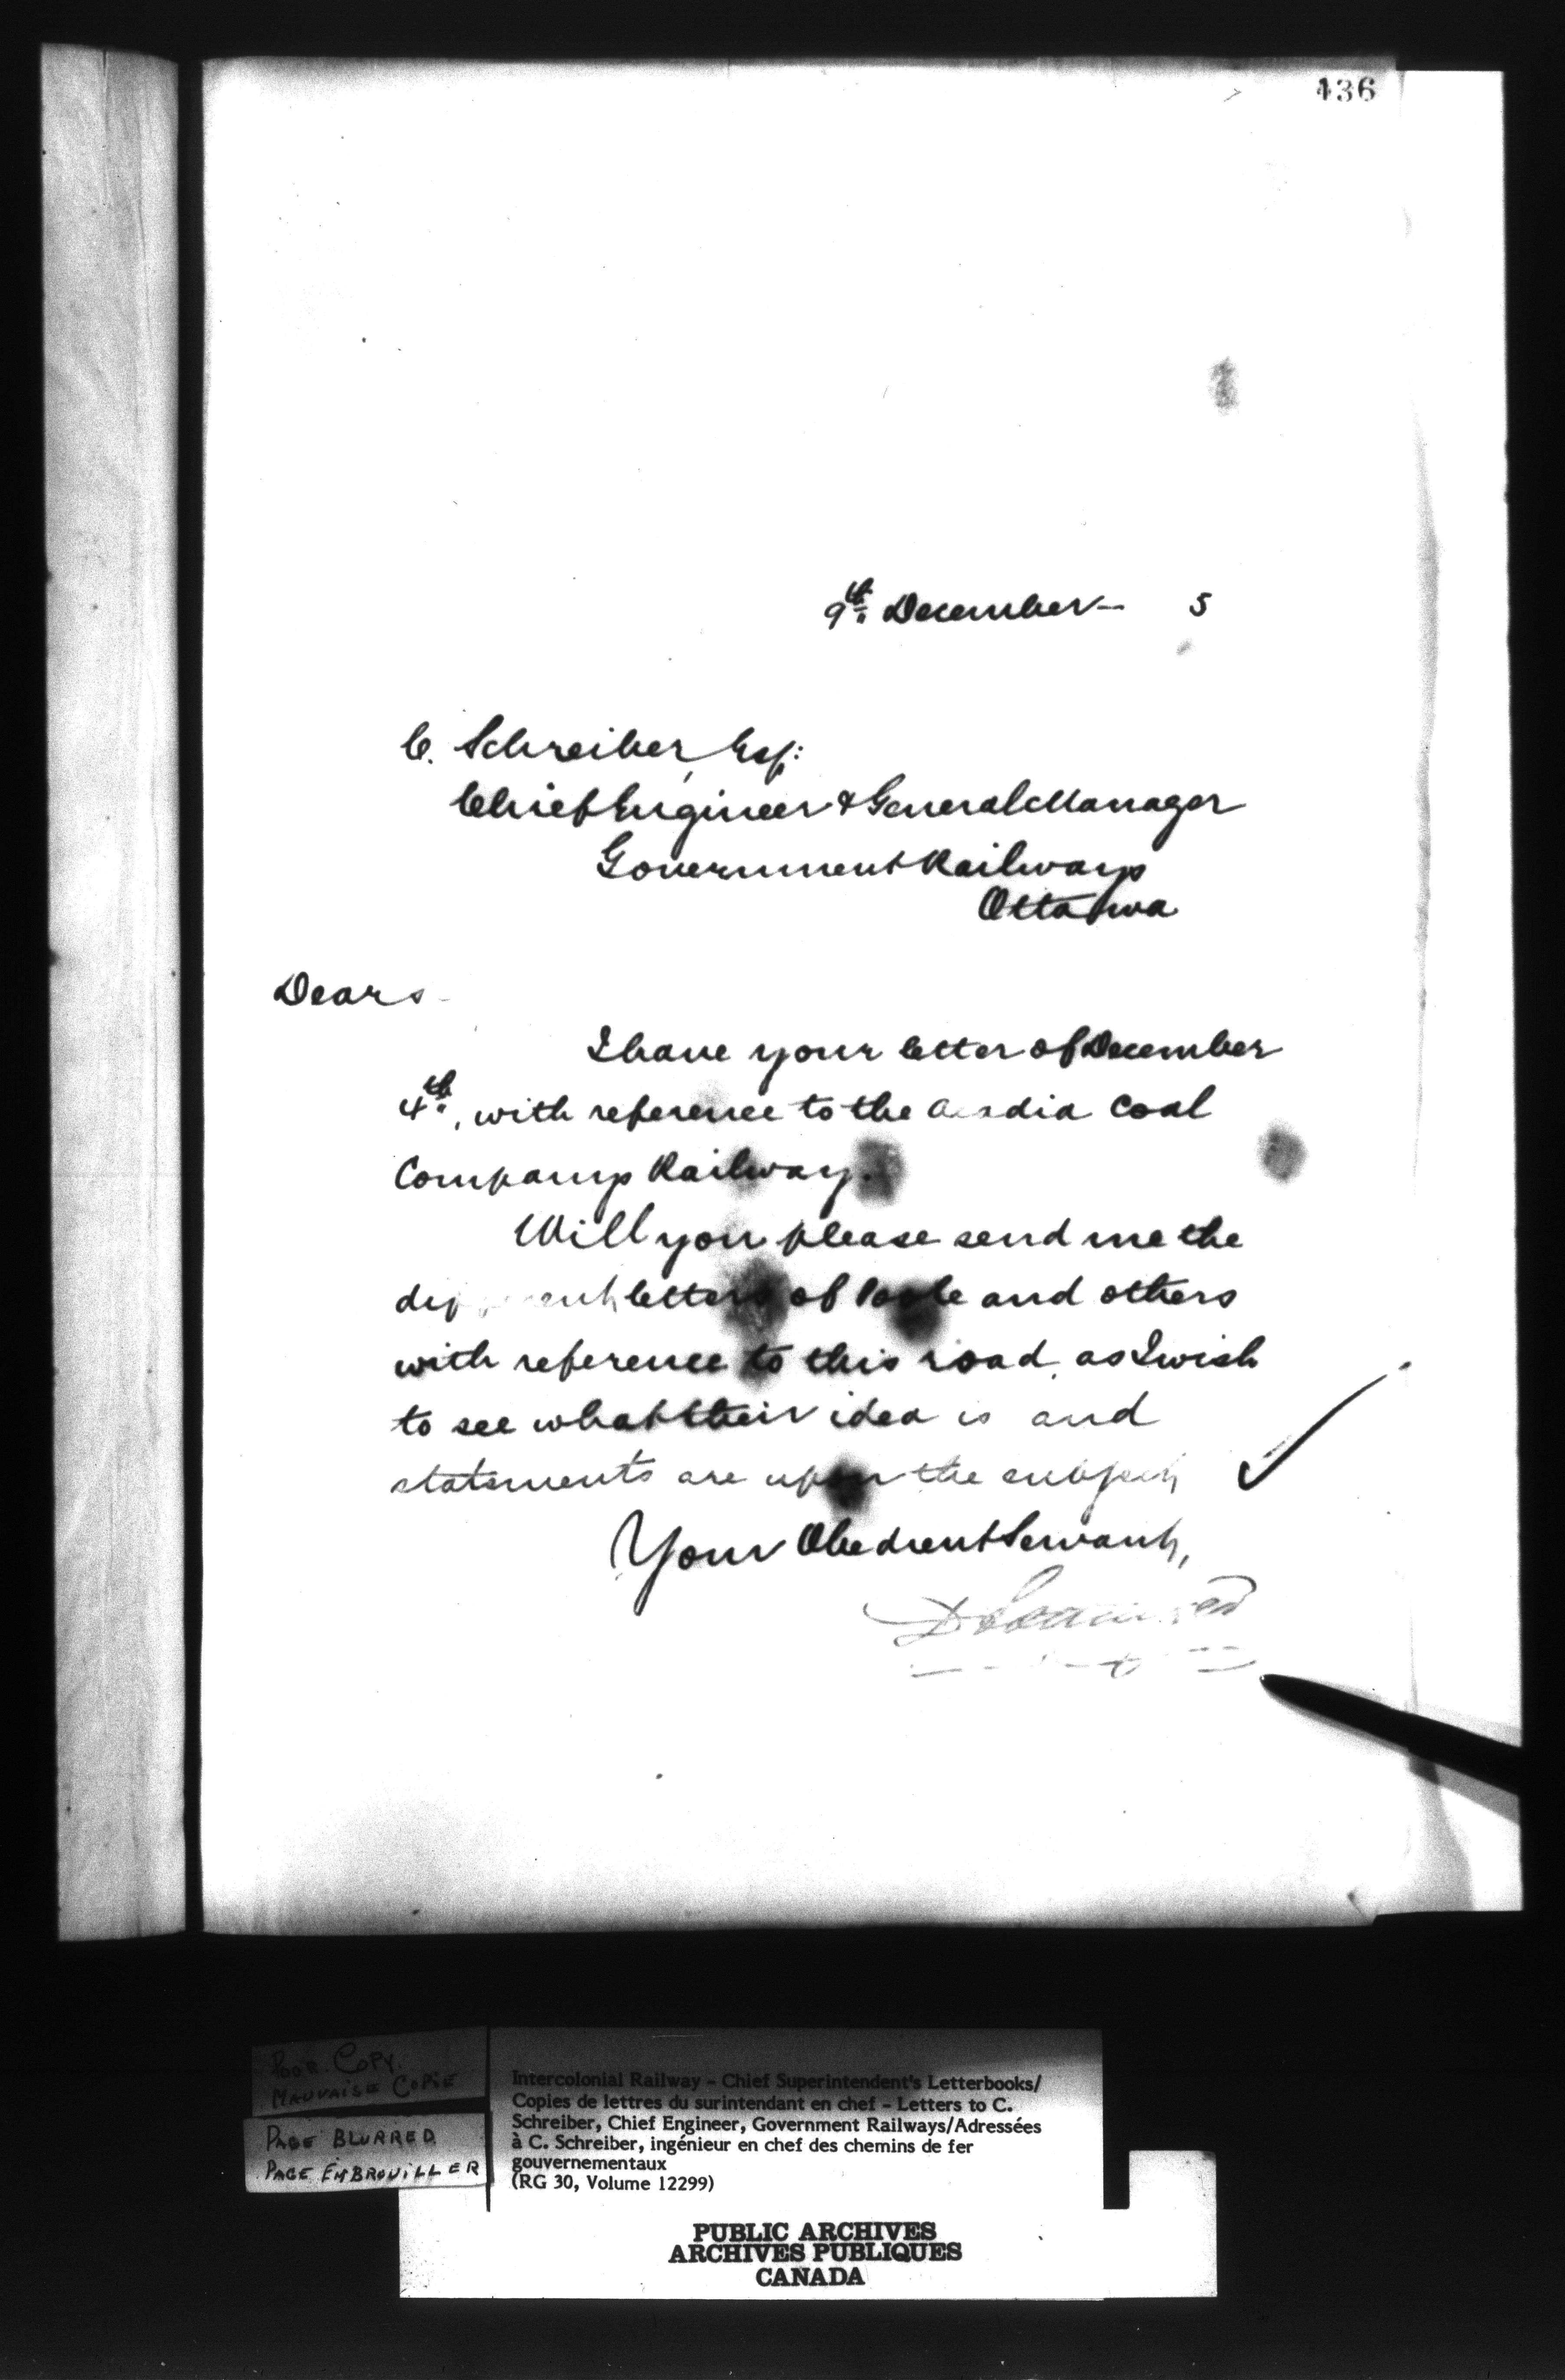 436
9th December — 5
C. Schreiber, Esq:
Chief Engineer & General Manager
Government Railways
Ottawa
Dear S
I have your letter of December
4th, with reference to the Acadia Coal
Company Railway.
Will you please send me the
letters of Poole and others
with reference to this road, as I wish
to see what their idea is and
statements are upon the subject
Your Obedient Servant,
POOR COPY.
MAUVAISE COPIE
PAGE BLURRED
PAGE EMBROUILLER
Intercolonial Railway – Chief Superintendent's Letterbooks/
Copies de lettres du surintendant en chef – Letters to C.
Schreiber, Chief Engineer, Government Railways/Adressées
à C. Schreiber, ingénieur en chef des chemins de fer
gouvernementaux
(RG 30, Volume 12299)
PUBLIC ARCHIVES
ARCHIVES PUBLIQUES
CANADA